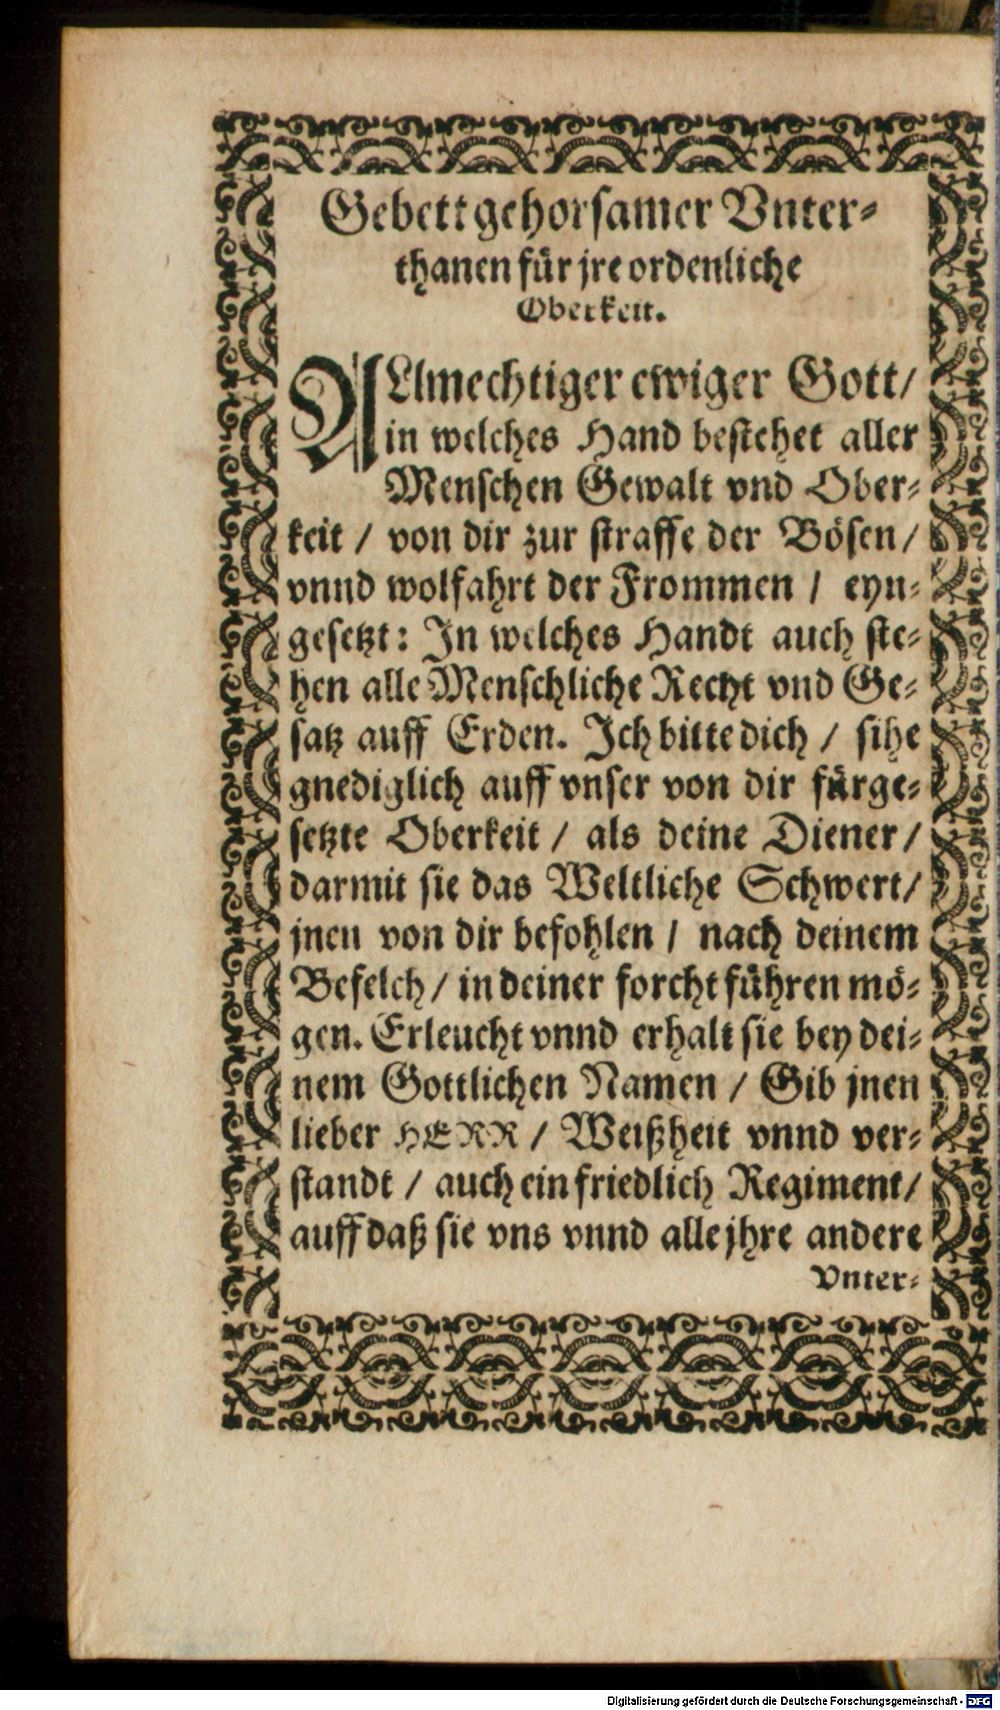 Gebett gehorsamer Vnter-
thanen für jre ordenliche
Oberkeit.
ALlmechtiger ewiger Gott/
in welches Hand bestehet aller
Menschen Gewalt vnd Ober-
keit / von dir zur straffe der Bösen/
vnnd wolfahrt der Frommen / eyn-
gesetzt: In welches Handt auch ste-
hen alle Menschliche Recht vnd Ge-
satz auff Erden. Ich bitte dich / sihe
gnediglich auff vnser von dir fürge-
setzte Oberkeit / als deine Diener/
darmit sie das Weltliche Schwert/
jnen von dir befohlen / nach deinem
Befelch / in deiner forcht führen mö-
gen. Erleucht vnnd erhalt sie bey dei-
nem Gottlichen Namen / Gib jnen
lieber HERR / Weißheit vnnd ver-
standt / auch ein friedlich Regiment/
auff daß sie vns vnnd alle jhre andere
Vnter-
Digitalisierung gefördert durch die Deutsche Forschungsgemeinschaft - DFG